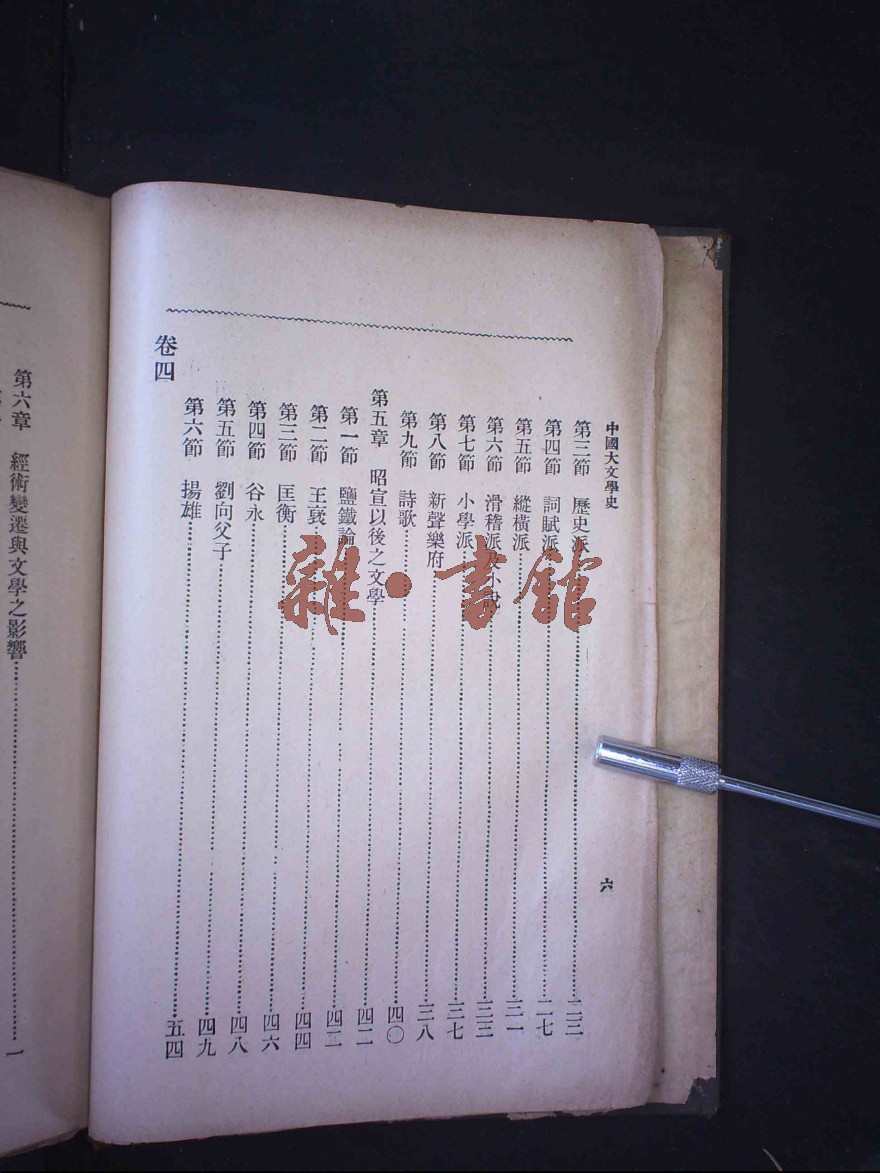 中國大文學史
六
第三節 歷史派 二三
第四節 詞賦派 二七
第五節 縱橫派 三一
第六節 滑稽派及小說 三三
第七節 小學派 三七
第八節 新聲樂府 三八
第九節 詩歌 四〇
第五章 昭宣以後之文學 四二
第一節 鹽鐵論 四二
第二節 王襃 四四
第三節 匡衡 四六
第四節 谷永 四八
第五節 劉向父子 四九
第六節 揚雄 五四
卷四
第六章 經術變遷與文學之影響 一
雜·書館